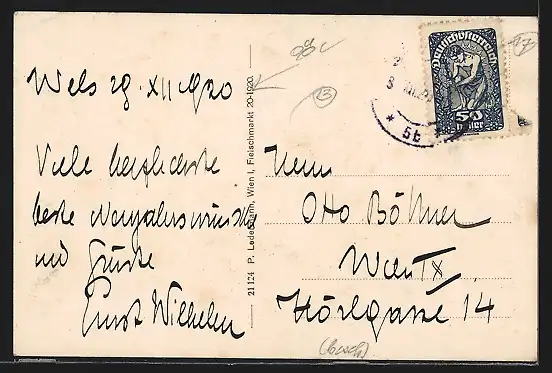 Wels 29. XII 1920
Viele herzlichste
beste Neujahrswünsche
und Grüße
Ernst Wilhelm
21124 P. Ledermann, Wien I, Fleischmarkt 20-1920.
Deutschösterreich
50
Heller
* 6b *
13
Herrn
Otto Böhmer
Wien IX
Hörlgasse 14